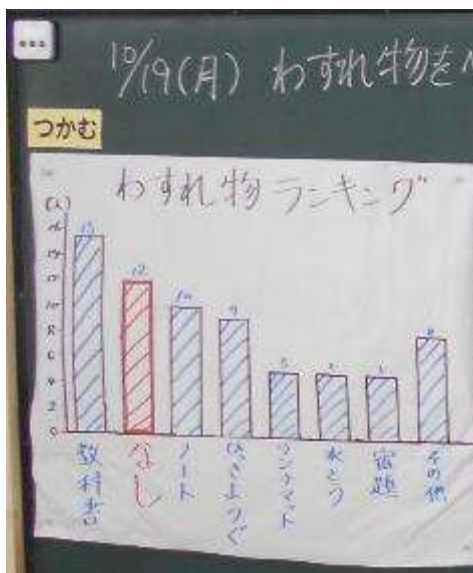 10/19(月) わすれ物を
つかむ
わすれ物ランキング
(人)
16
14
12
10
8
6
4
2
0
15
12
10
9
5
8
教科書
なし
ノート
ひっきようぐ
ランチマット
水とう
宿題
その他